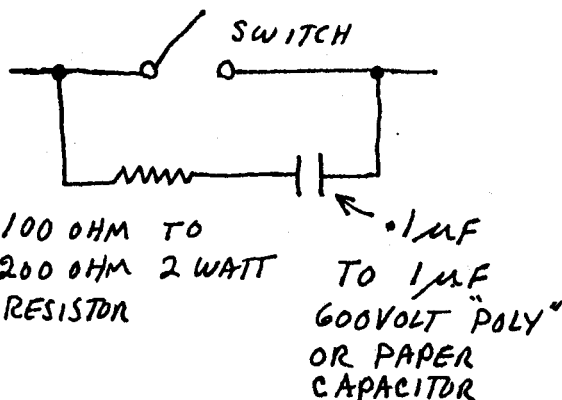 SWITCH
100 OHM TO
200 OHM 2 WATT
RESISTOR
.1µF
TO 1µF
600VOLT "POLY"
OR PAPER
CAPACITOR